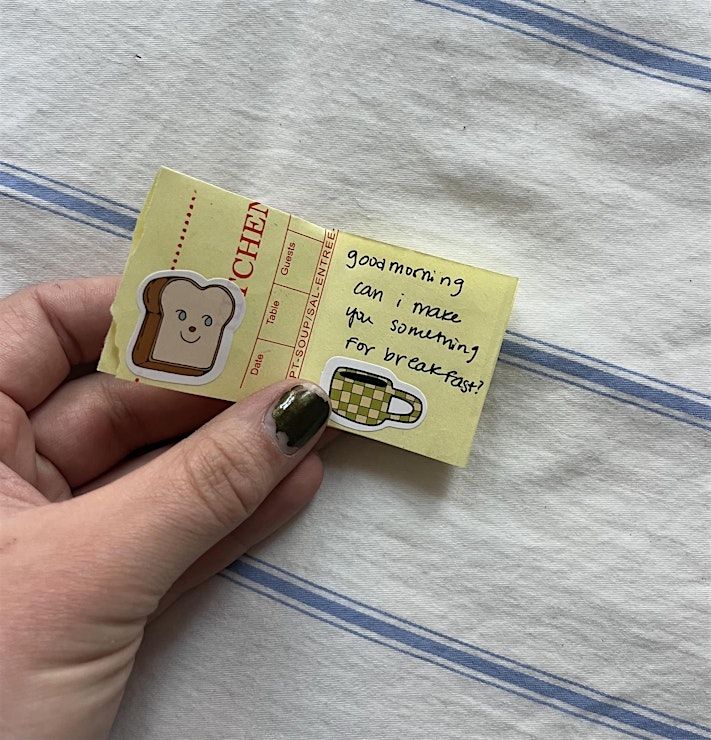 TCHEN
Date Table Guests
PT-SOUP/SAL-ENTREE-
goodmorning
can i make
you something
for breakfast?